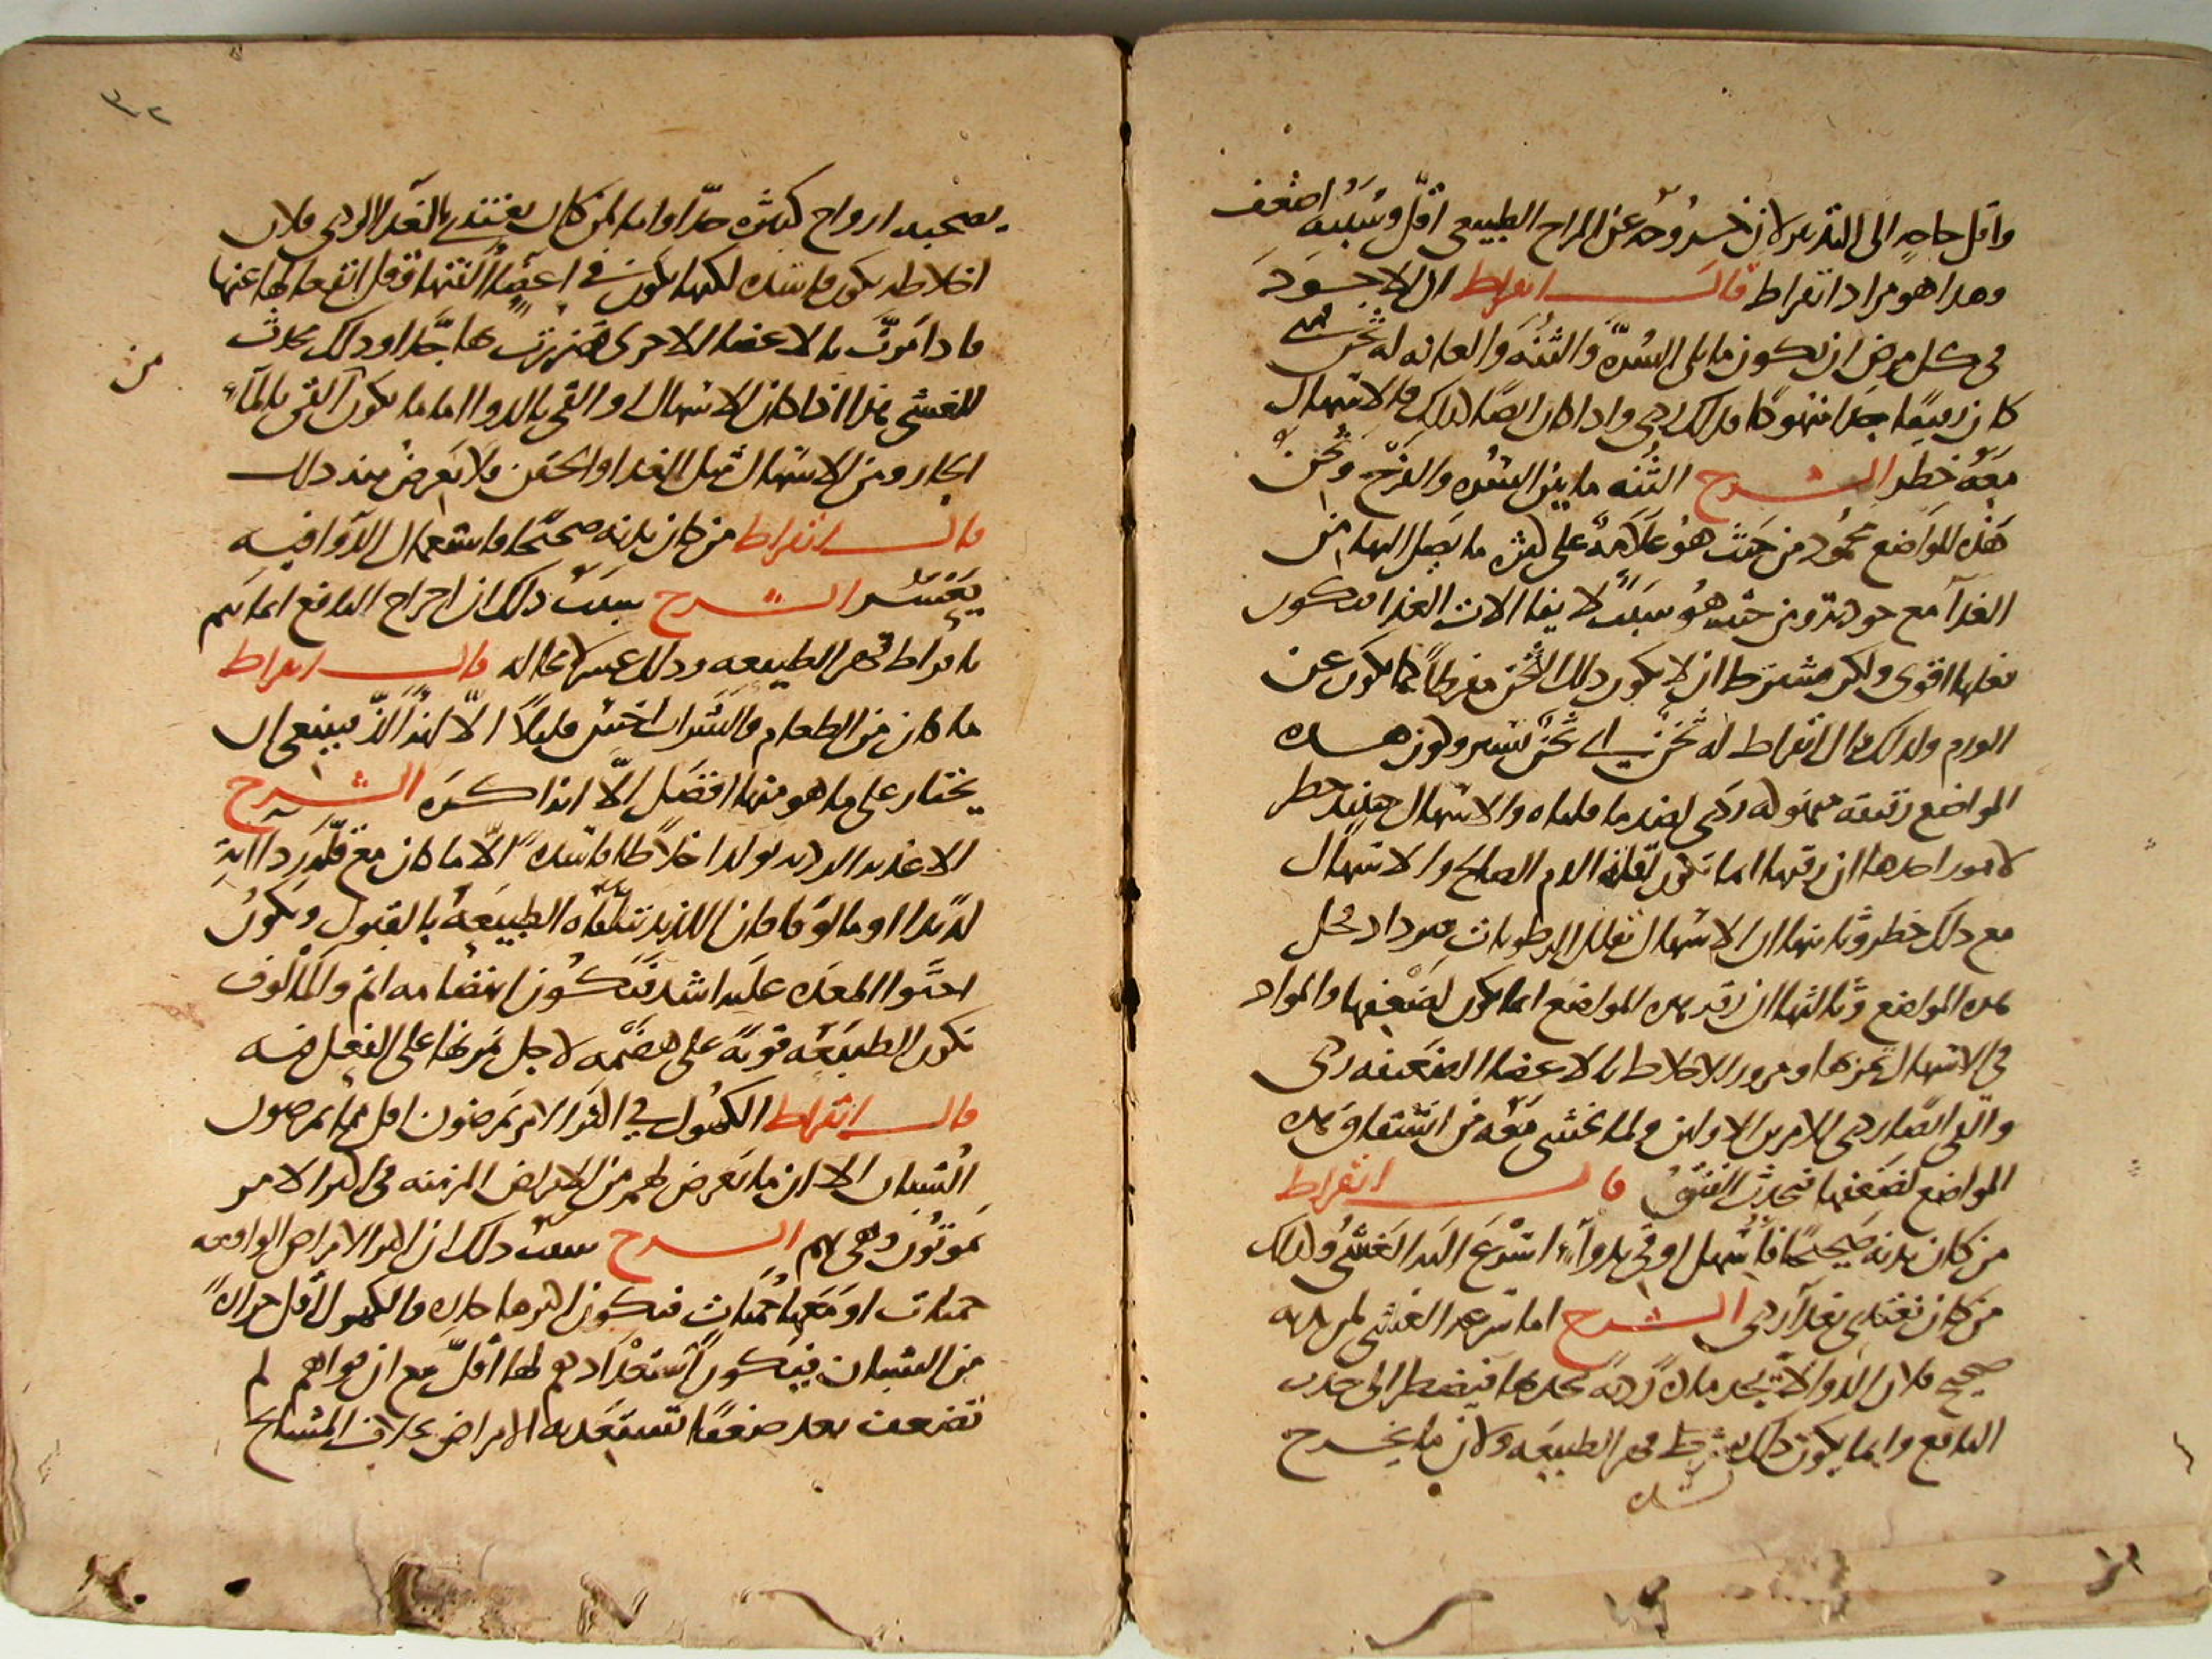 واقل حاجه الى التدبير لان خروجه عن المزاج الطبيعى اقل وسببه اضعف
وهدا هو مراد ابقراط قال ابقراط ان الاجود
فى كل مرض ان يكون ما يلى السره والثنه والعانه له ثخن ومتى
كان رقيقا جدا منهوكا فدلك ردى وادا كان ايضا كدلك فالاسهال
معه خطر الشرح الثنه ما بين السره والفرج وثخن
هذه المواضع محمود من حيث هو علامه على كثره ما يصل اليها من
الغدآ مع جودته ومن حيث هو سبب لايفا الات الغدا فيكون
فعلها اقوى ولكن يشترط ان لا يكون دلك الثخن مفرطا كما يكون عن
الورم ولدلك قال ابقراط له ثخن اى ثخن يسير وكون هده
المواضع رقيقه مهزوله ردى لضد ما قلناه والاسهال حينيد خطر
لامور احدها ان رقتها انما تكون لقله الدم الصالح والاسهال
مع دلك خطر وثانيها ان الاسهال تقلل الرطوبات فيزداد نحل
هده المواضع وثالثها ان رقه هده المواضع انما يكون لضعفها والمواد
فى الاسهال تمر بها ومرور الاخلاط بالاعضا الضعيفه ردى
والقى ايضا ردى للامرين الاولين ولما نخشى معه من انشقاق هده
المواضع لضعفها فيحدث الفتق قال ابقراط
من كان بدنه صحيحا فاسهل او قى بدوآء اسرع اليه الغشى وكدلك
من كان يغتدى بغدآ ردى الشرح اما سرعه الغشى لمن بدنه
صحيح فلان الدوا لا يجد ماده رديه يجدبها فيضطر الى جدب
النافع وانما يكون دلك بشرط قهر الطبيعه ولان ما يخرج
يصحبه ارواح كثيره جدا واما لمن كان يغتدى بالغدا الردى فلان
اخلاطه يكون فاسده لكنها يكون فى اعضا الفتها فقل انفعالها عنها
فادا مرت بالاعضا الاخرى تضررت بها جدا ودلك يحدث
للغشى هذا اذا كان الاسهال والقى بالدوا اما ما يكون القى بالمآء
الحار ومن الاسهال قبل الغدا والحقن فلا يعرض منه دلك
قال ابقراط من كان بدنه صحيحا فاستعمال الدوا فيه
يعسر الشرح سبب دلك ان اخراج النافع انما يتم
بافراط قهر الطبيعه ودلك عسر لا محاله قال ابقراط
ما كان من الطعام والشراب اخس قليلا الا انه الذ فينبغى ان
يختار على ما هو منها افضل الا انه اكره الشرح
الاغديه الرديه تولد اخلاطا فاسده الا ما كان مع قله رداآته
لذيذا او مالوفا فان اللذيذ تتلقاه الطبيعه بالقبول ويكون
احتوا المعده عليه اشد فيكون انهضامه اتم والمالوف
تكون الطبيعه قويه على هضمه لاجل تمرنها على الفعل فيه
قال ابقراط الكهول في اكثر الامر يمرضون اقل مما يمرض
الشبان الا ان ما يعرض لهم من الامراض المزمنه فى اكثر الامر
يموتون وهى بهم الشرح سبب دلك ان اكثر الامراض الواقعه
حميات او معها حميات فيكون اكثرها حاده والكهول اقل حراره
من الشبان فيكون استعدادهم لها اقل مع ان قواهم لم
تضعف بعد ضعفا تستعد به الامراض بخلاف المشايخ